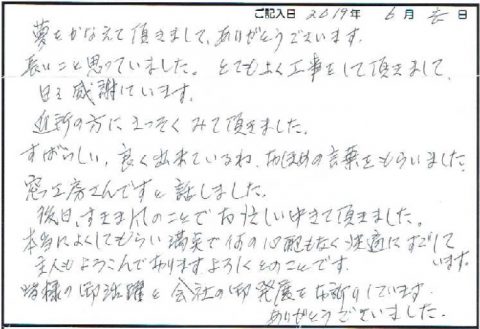 ご記入日 2019年 6月 日
夢をかなえて頂きまして、ありがとうございます。
長いこと思っていました。とてもよく工事をして頂きまして、
日々感謝しています。
近所の方にさっそくみて頂きました。
すばらしい、良く出来ているね、おほめの言葉をもらいました。
窓工房さんですと話しました。
後日、すきま のことでお忙しい中きて頂きました。
本当によくしてもらい満足で何の心配もなく快適にすごして
います。
主人もよろこんでおりますよろしくとのことです。
皆様の御活躍と会社の御発展をお祈りしています。
ありがとうございました。